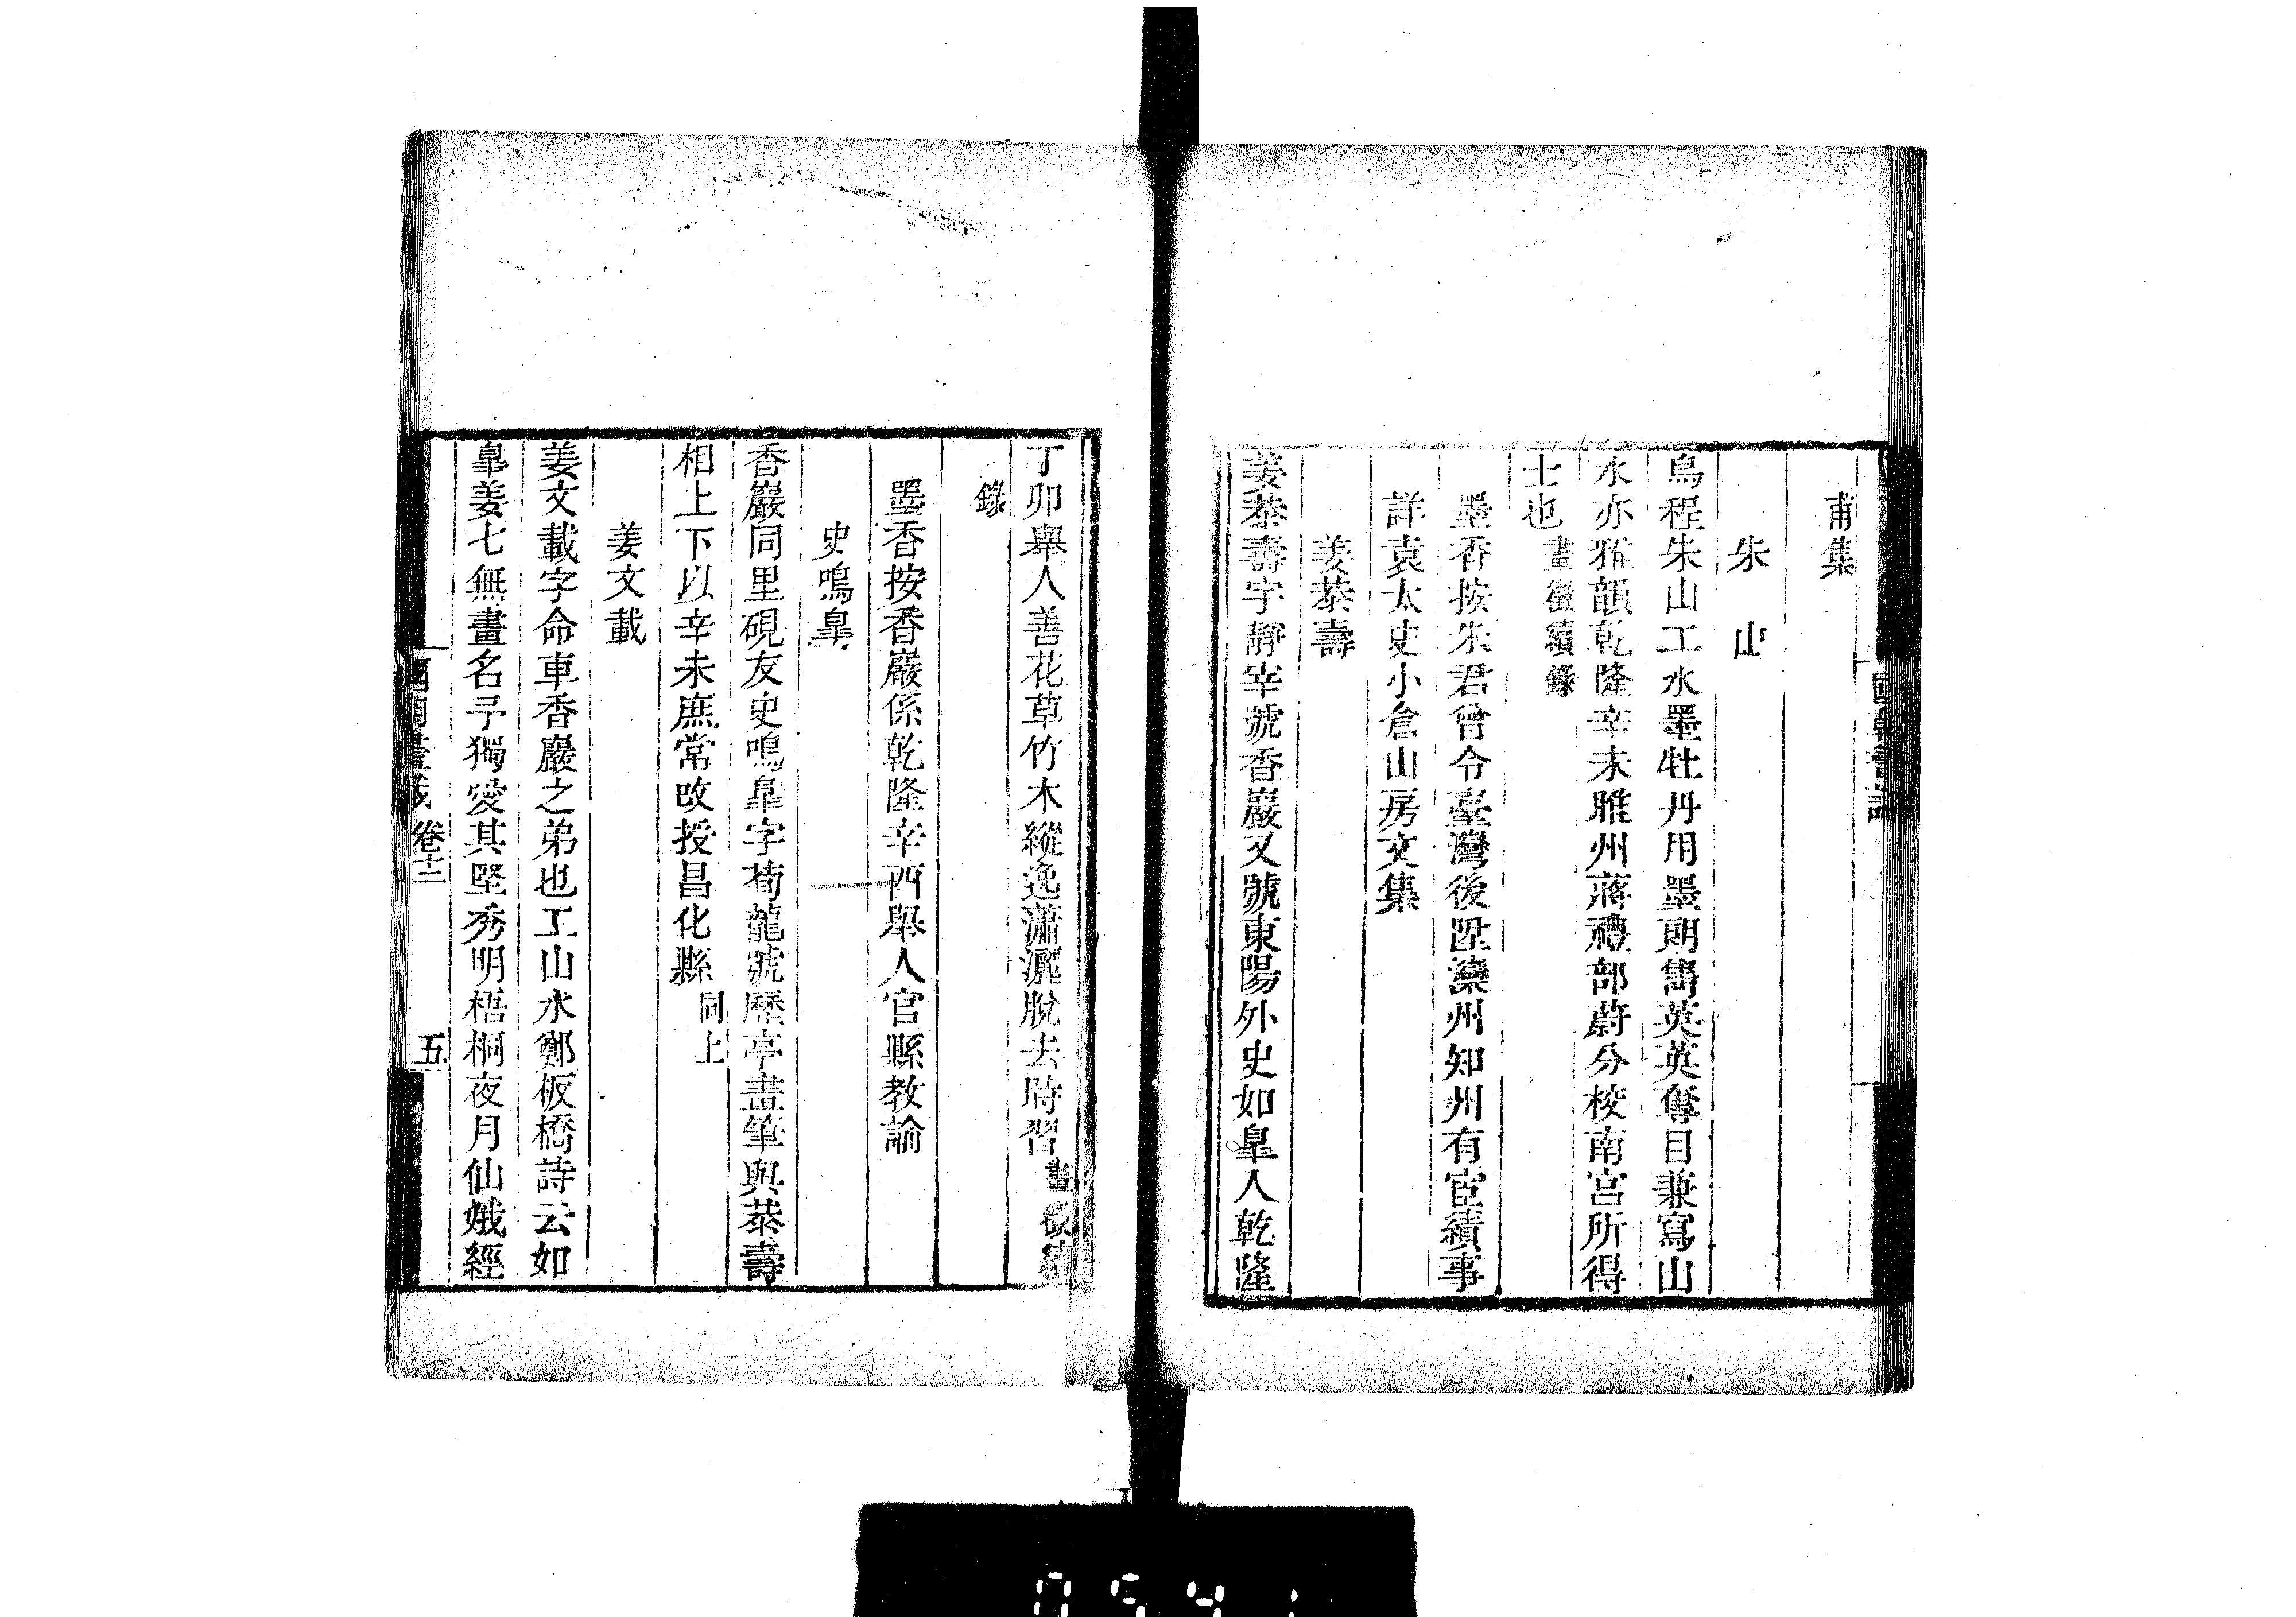 甫集
朱山
烏程朱山工水墨牡丹用墨則雋英英奪目兼寫山
水亦雅韻乾隆辛未睢州蔣禮部蔚分校南宫所得
士也畫徵續錄
墨香按朱君曾令臺灣後陞灤州知州有宦績事
詳袁太史小倉山房文集
姜恭壽
姜恭壽字靜宰號香巖又號東陽外史如臯人乾隆
丁卯舉人善花草竹木縱逸瀟灑脫去時習畫徵續
錄
墨香按香巖係乾隆辛酉舉人官縣教諭
史鳴臯
香巖同里硯友史鳴臯字荀龍號歷亭畫筆與恭壽
相上下以辛未庶常改授昌化縣同上
姜文載
姜文載字命車香巖之弟也工山水鄭板橋詩云如
臯姜七無畫名予獨愛其堅秀明梧桐夜月仙娥經
卷十二
五